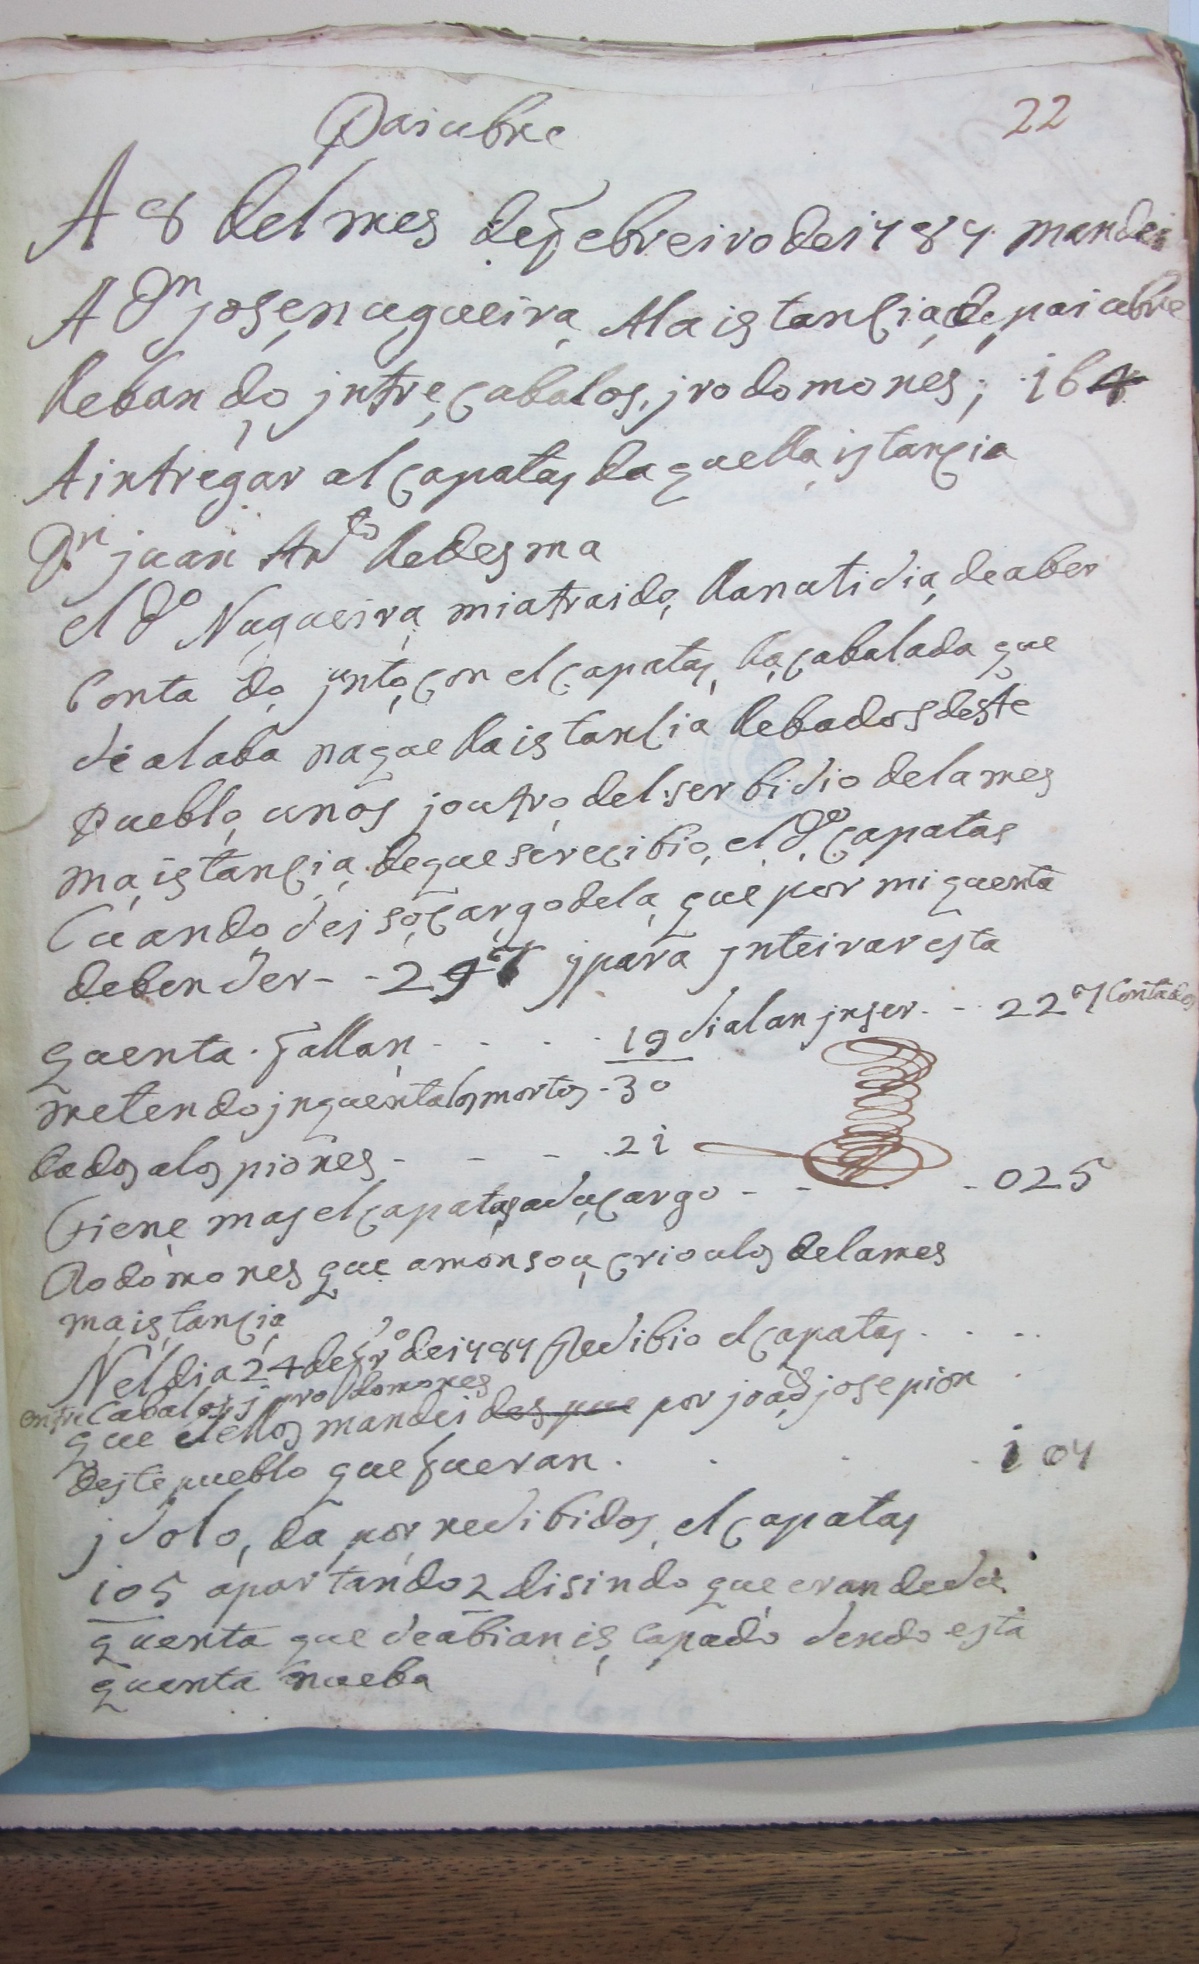 Paiubre
22
A 8 del mes defebreiro de i787 mandei
A Dn jose nugueira Ala istancia de paiubre
lebando jntre cabalos, j rodomones; i64
Aintregar al capatas daquella istancia
Dn juan Anto Ledesma
el Do Nugueira miatraido lanutisia deaber
Conta do junto con el capatas la cabalada que
sealaba naquella istancia lebados deste
pueblo unos joutro del serbisio dela mes
ma istancia deque se recibio el Do capatas
Cuando sejsocargo dela que por mi quenta
deben ser - - 297 ypara jnteirar esta
quenta fallan - . . . 19 sialan jnser - - 227 Contados
metendo jnquenta los mortos - 30
dados alos piones - - - . 2i
Tiene mas el capatas asucargo - - . - 025
Rodomones que amonsou crioulos delames
ma istancia
Nel dia 24 defro dei787 Recibio el capatas . . . .
entre Cabalos j rodomones
que dellos mandei des que por joao jose pion
deste pueblo que fueran . . . . i 07
j solo, da por recibidos el capatas
i05 apartando 2 disindo que eran desu
quenta que seabian iscapado sendo esta
quenta nueba